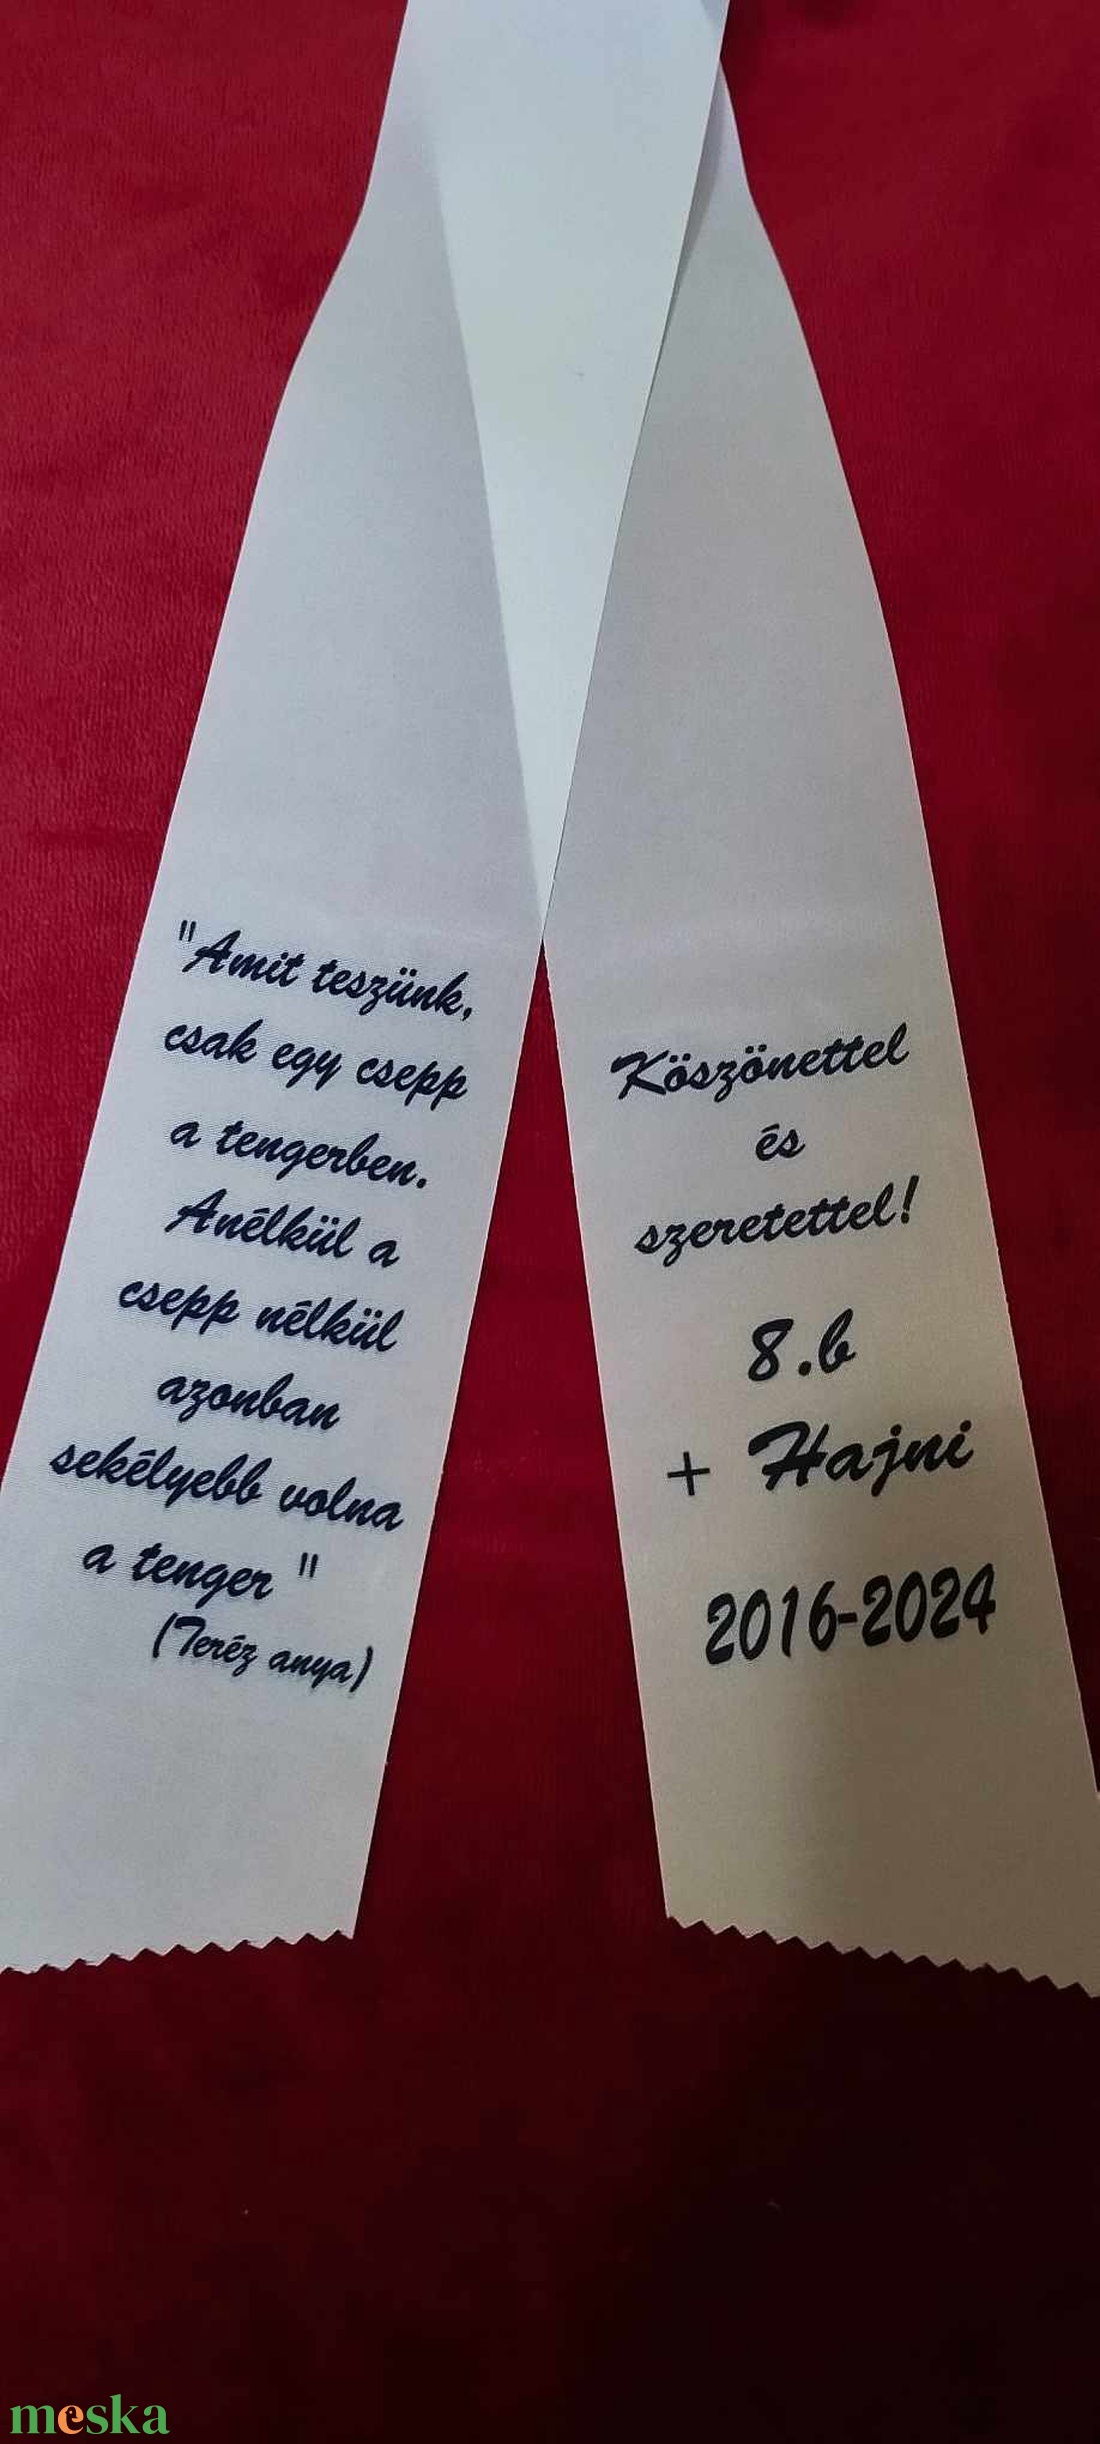 "Amit teszünk,
csak egy csepp
a tengerben.
Anélkül a
csepp nélkül
azonban
sekélyebb volna
a tenger "
(Teréz anya)
Köszönettel
és
szeretettel!
8.b
+ Hajni
2016-2024
meska